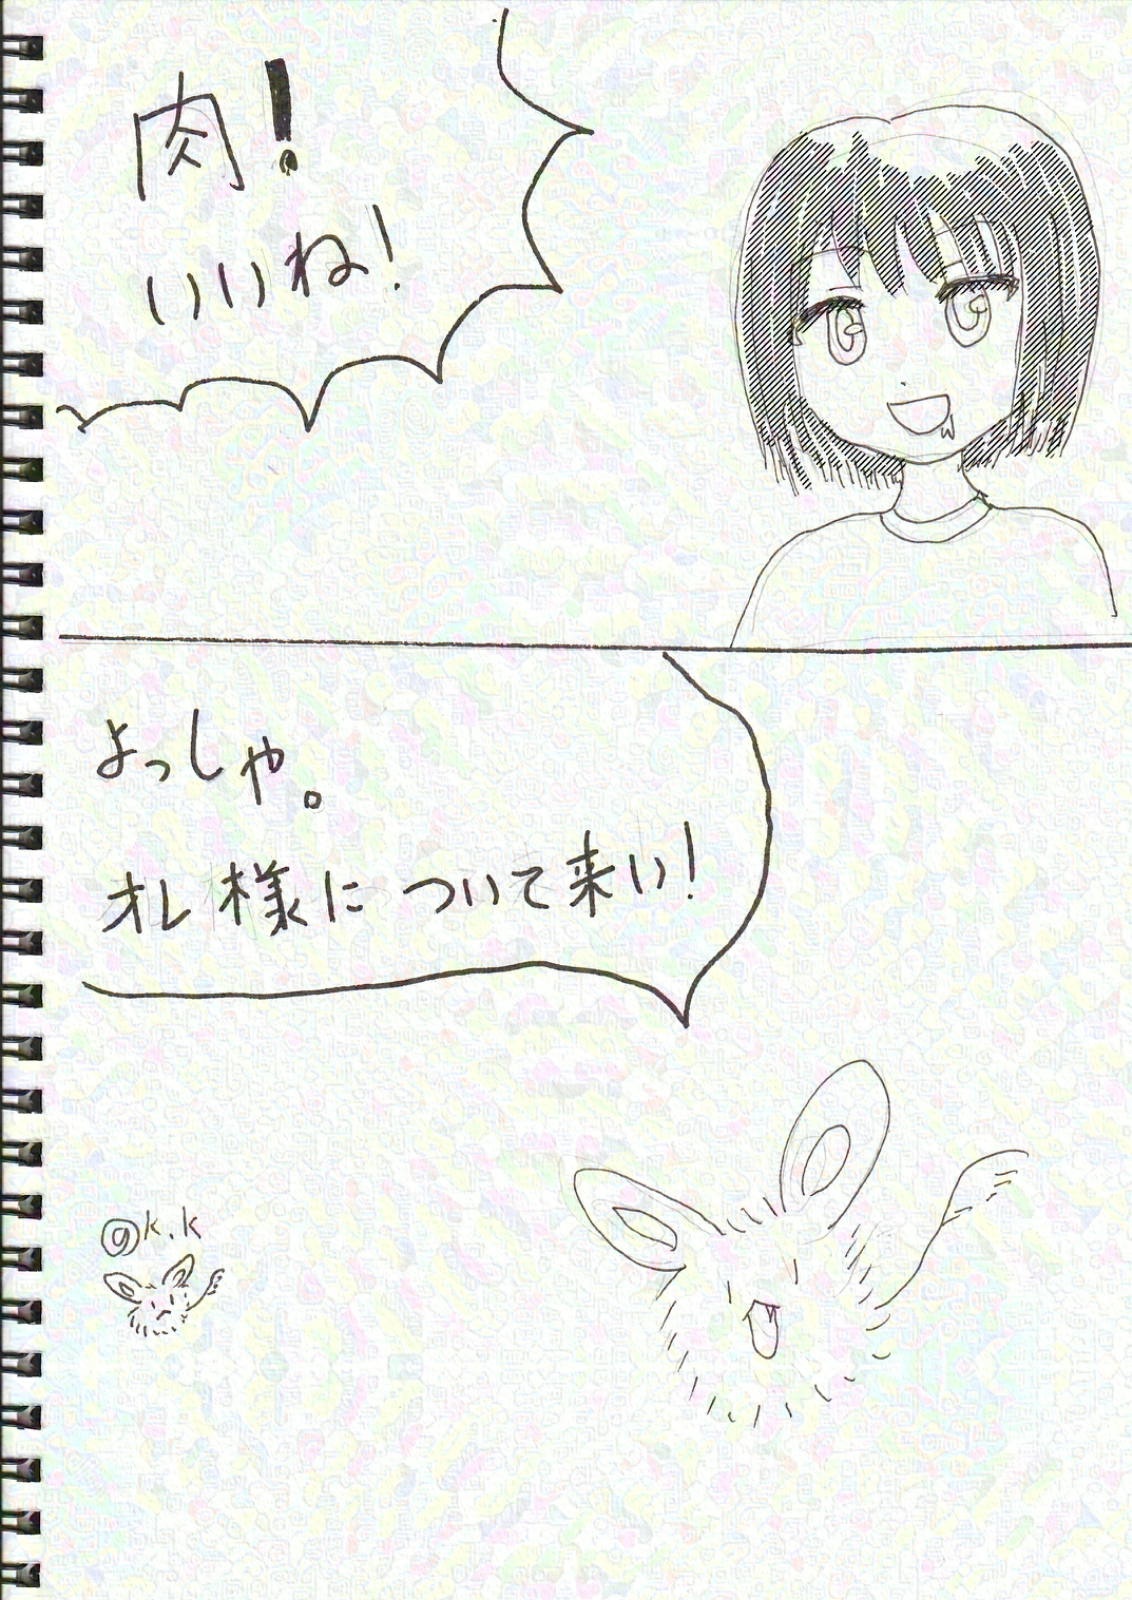 肉！
いいね！
よっしゃ。
オレ様について来い！
@k.k